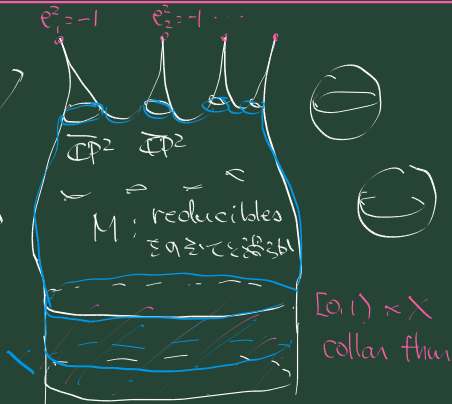 e₁² = -1 e₂² = -1 ...
\overline{CP}² \overline{CP}²
M : reducibles
[0,1) × X
collar thm